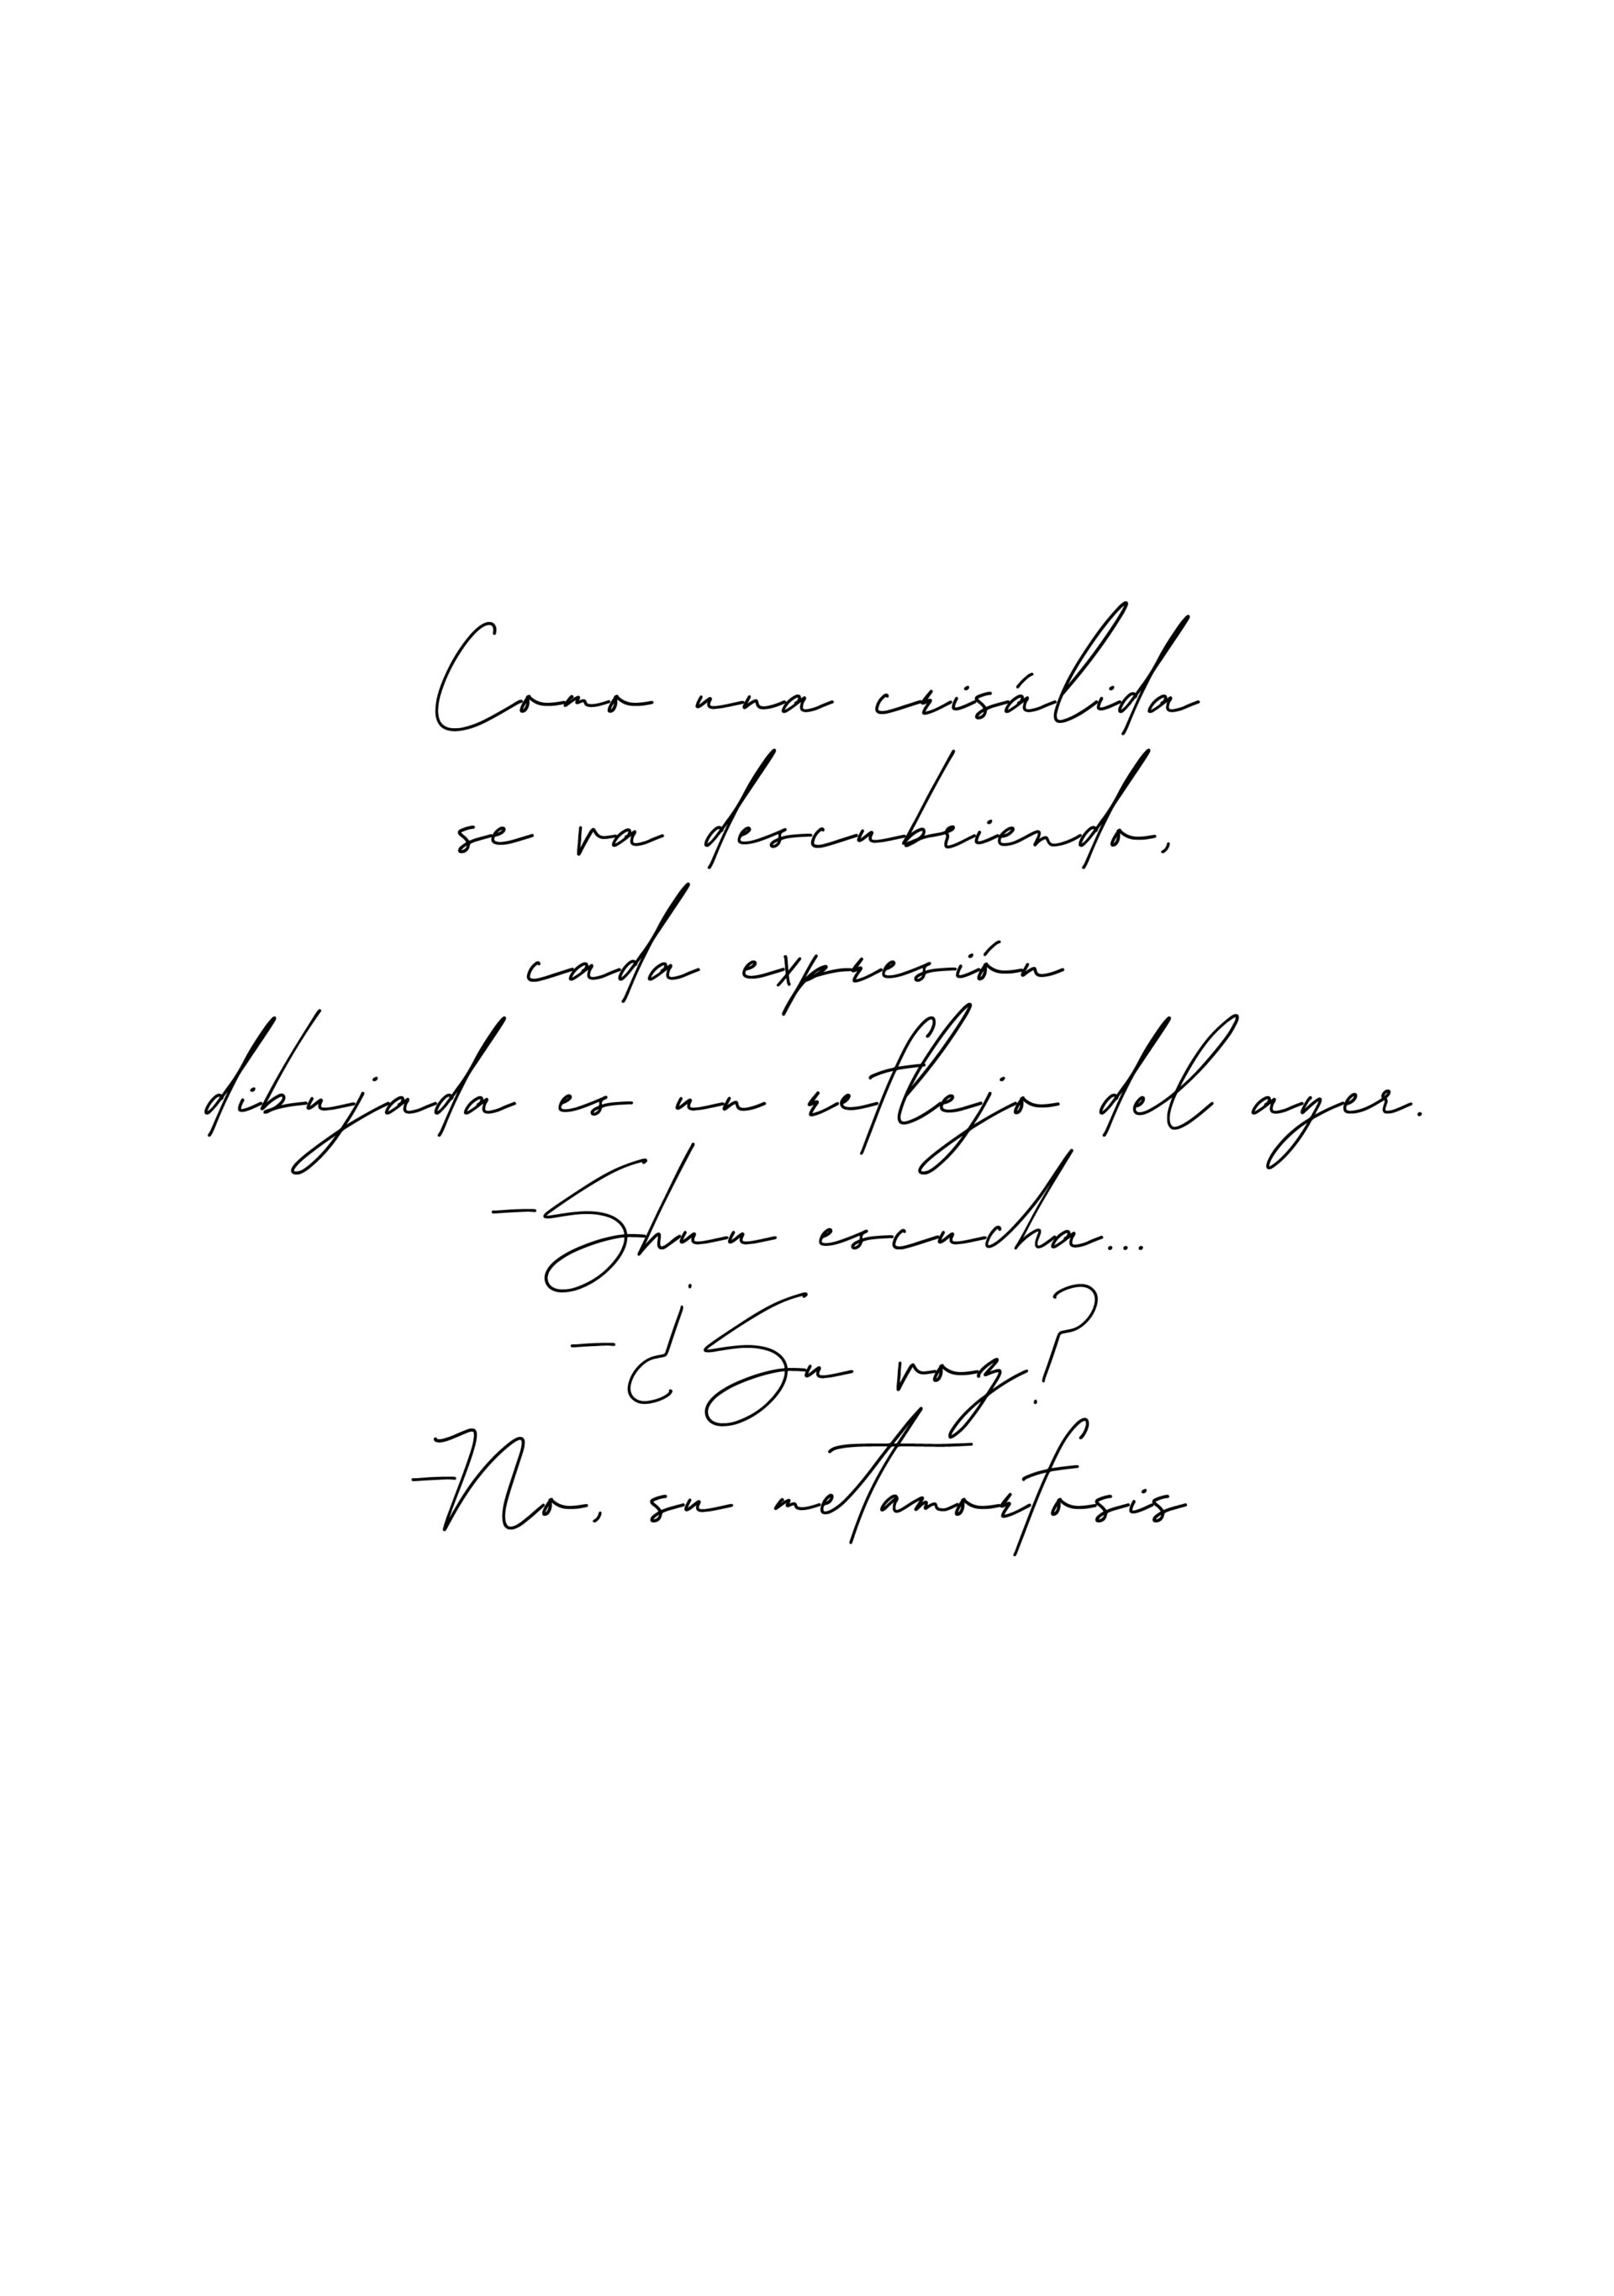 Como una crisálida
se va descubriendo,
cada expresión
dibujada es un reflejo del ayer.
—Shuu escucha...
—¿Su voz?
—No, su metamorfosis